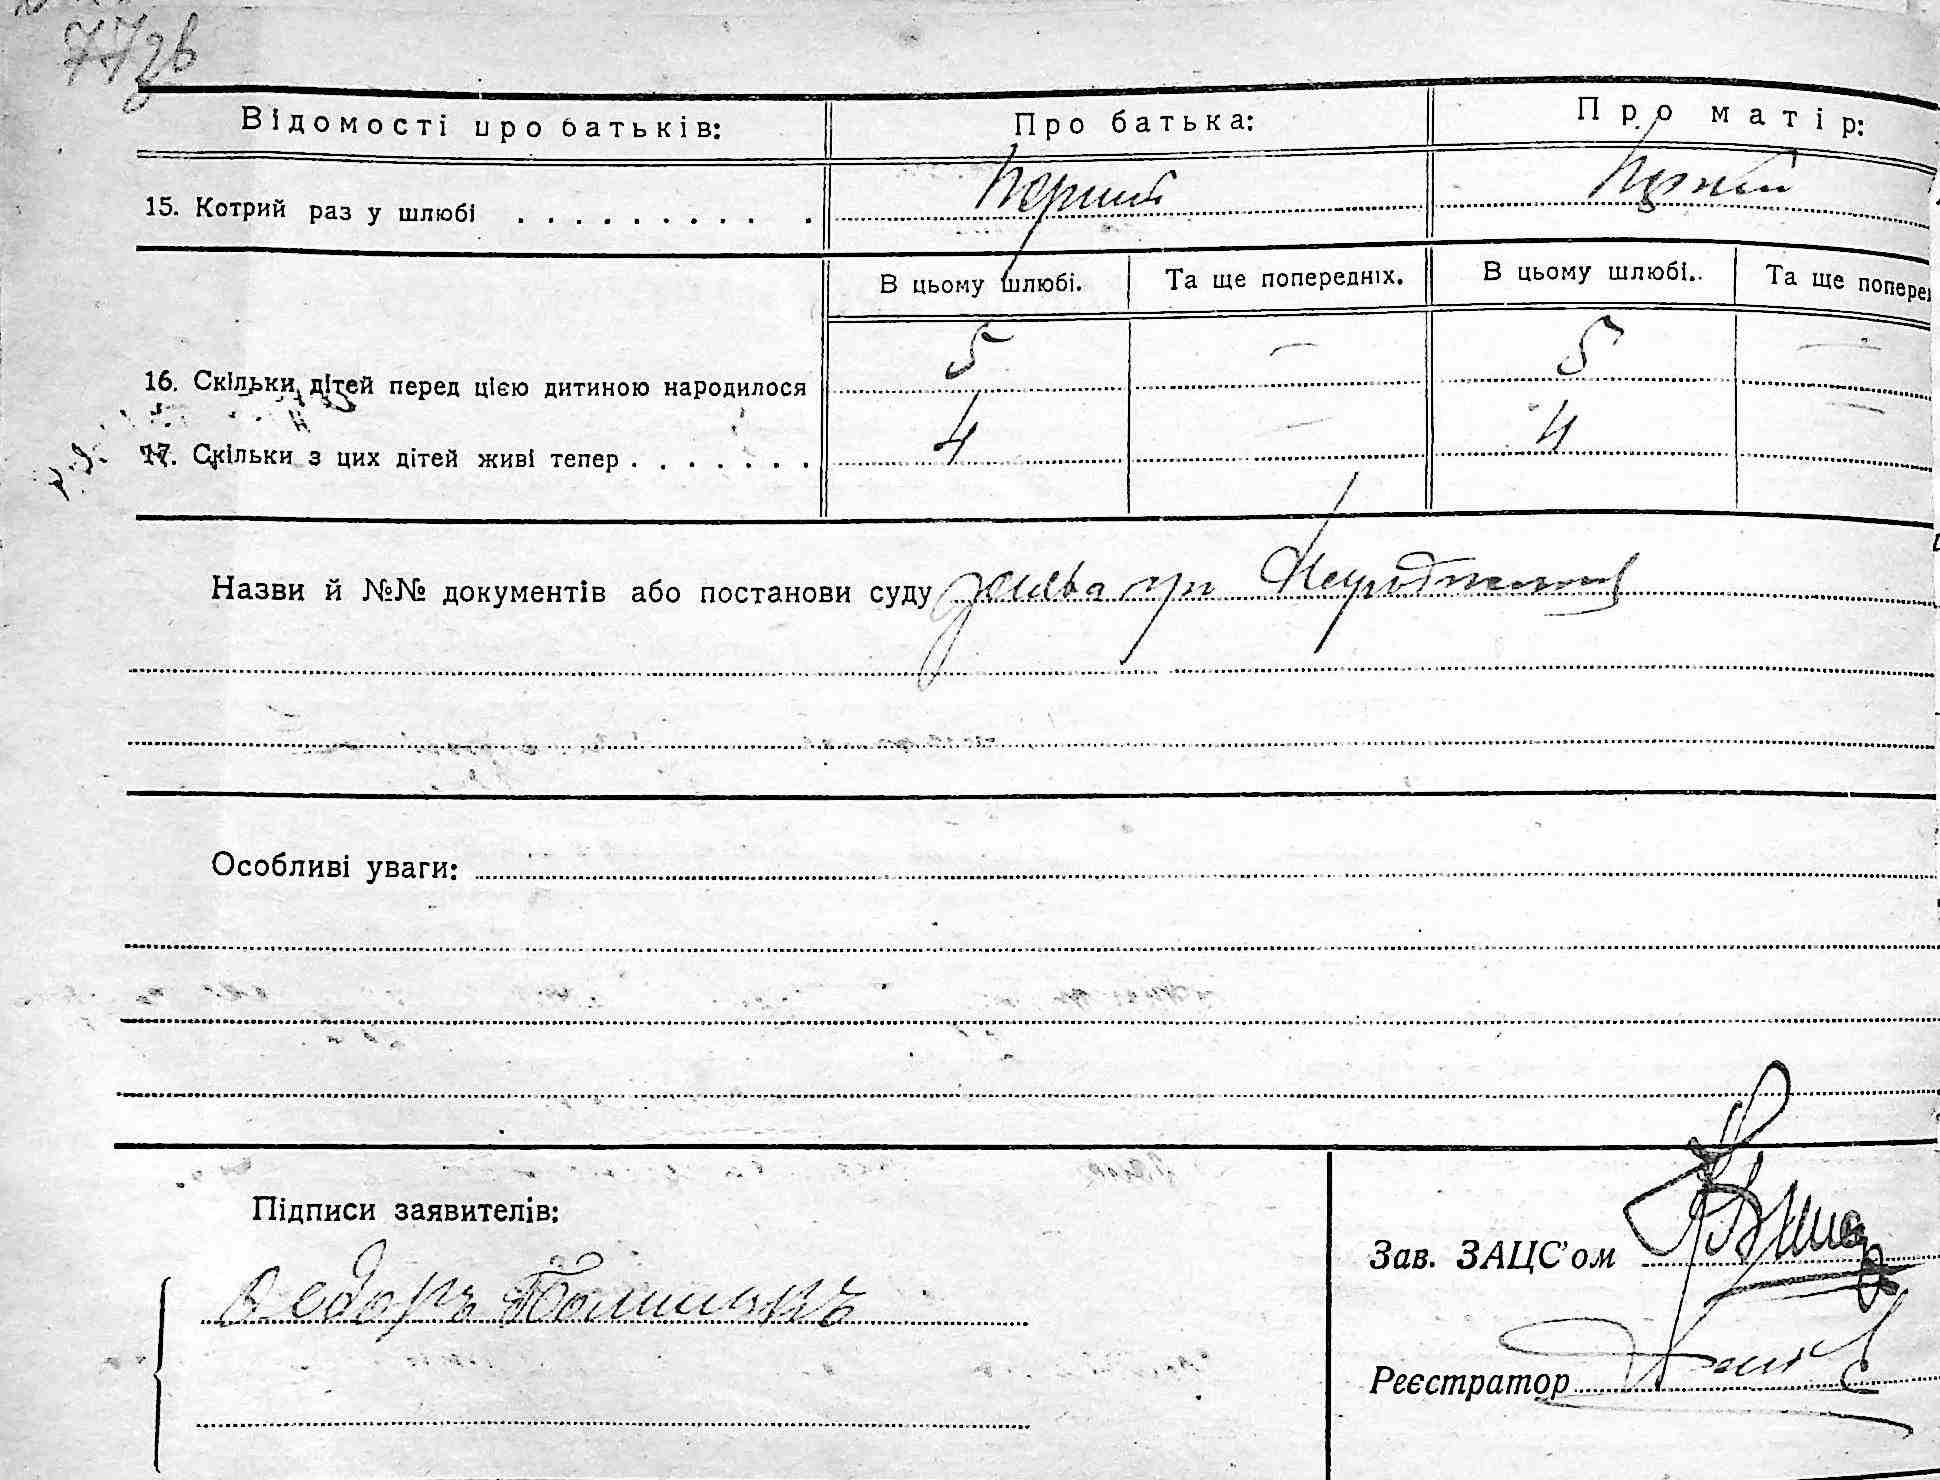 77зв
Відомості про батьків: Про батька: Про матір:
15. Котрий раз у шлюбі . . . . . . . . . . Перший
В цьому шлюбі. Та ще попередніх. В цьому шлюбі. Та ще поперед
16. Скільки дітей перед цією дитиною народилося 5 — 5 —
17. Скільки з цих дітей живі тепер . . . . . . . 4 — 4 —
Назви й №№ документів або постанови суду
Особливі уваги:
Підписи заявителів:
Зав. ЗАЦС'ом
Федоръ
Реєстратор